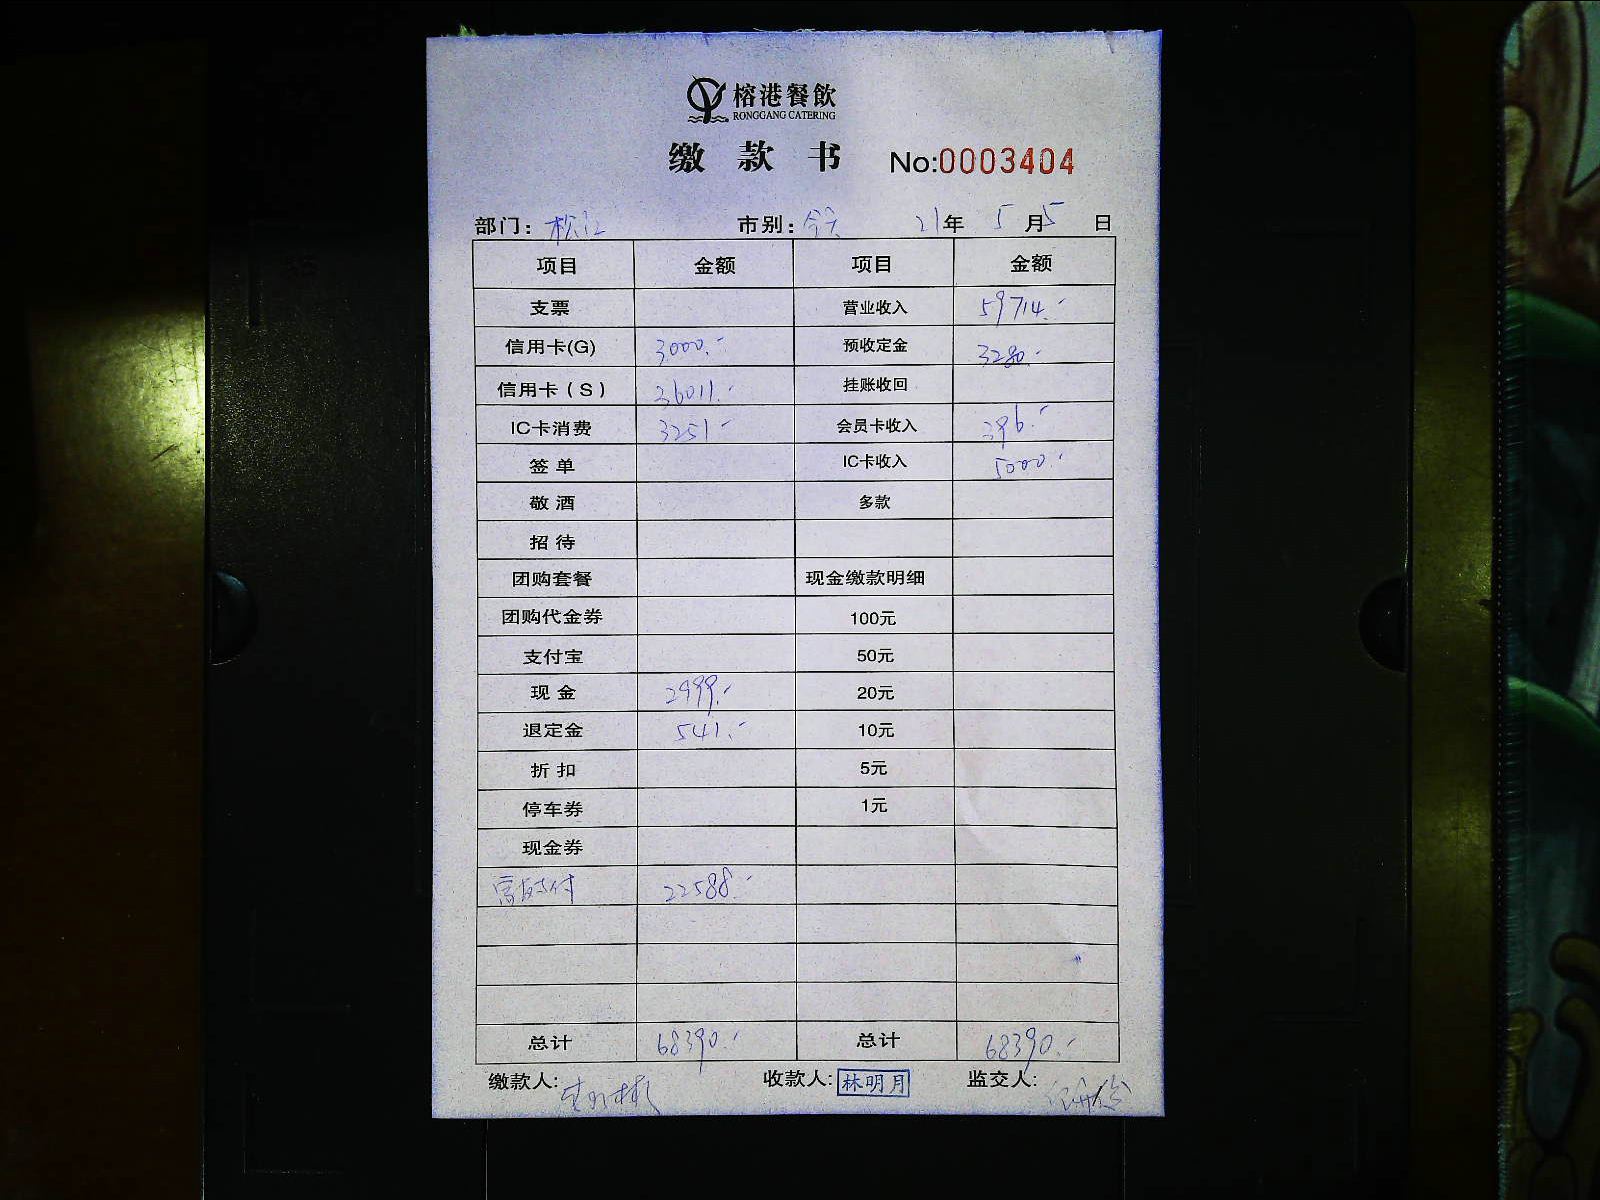 榕港餐飲
RONGGANG CATERING
缴款书 No:0003404
部门: 松江 市别: 今天 21年 5月5日
项目 金额 项目 金额
支票 营业收入 59714.-
信用卡(G) 3000.- 预收定金 3280.-
信用卡(S) 36011.- 挂账收回
IC卡消费 3251.- 会员卡收入 396.-
签单 IC卡收入 5000.-
敬酒 多款
招待
团购套餐 现金缴款明细
团购代金券 100元
支付宝 50元
现金 2999.- 20元
退定金 541.- 10元
折扣 5元
停车券 1元
现金券
支付 22588.-
总计 68390.- 总计 68390.-
缴款人: 收款人: 林明月 监交人: